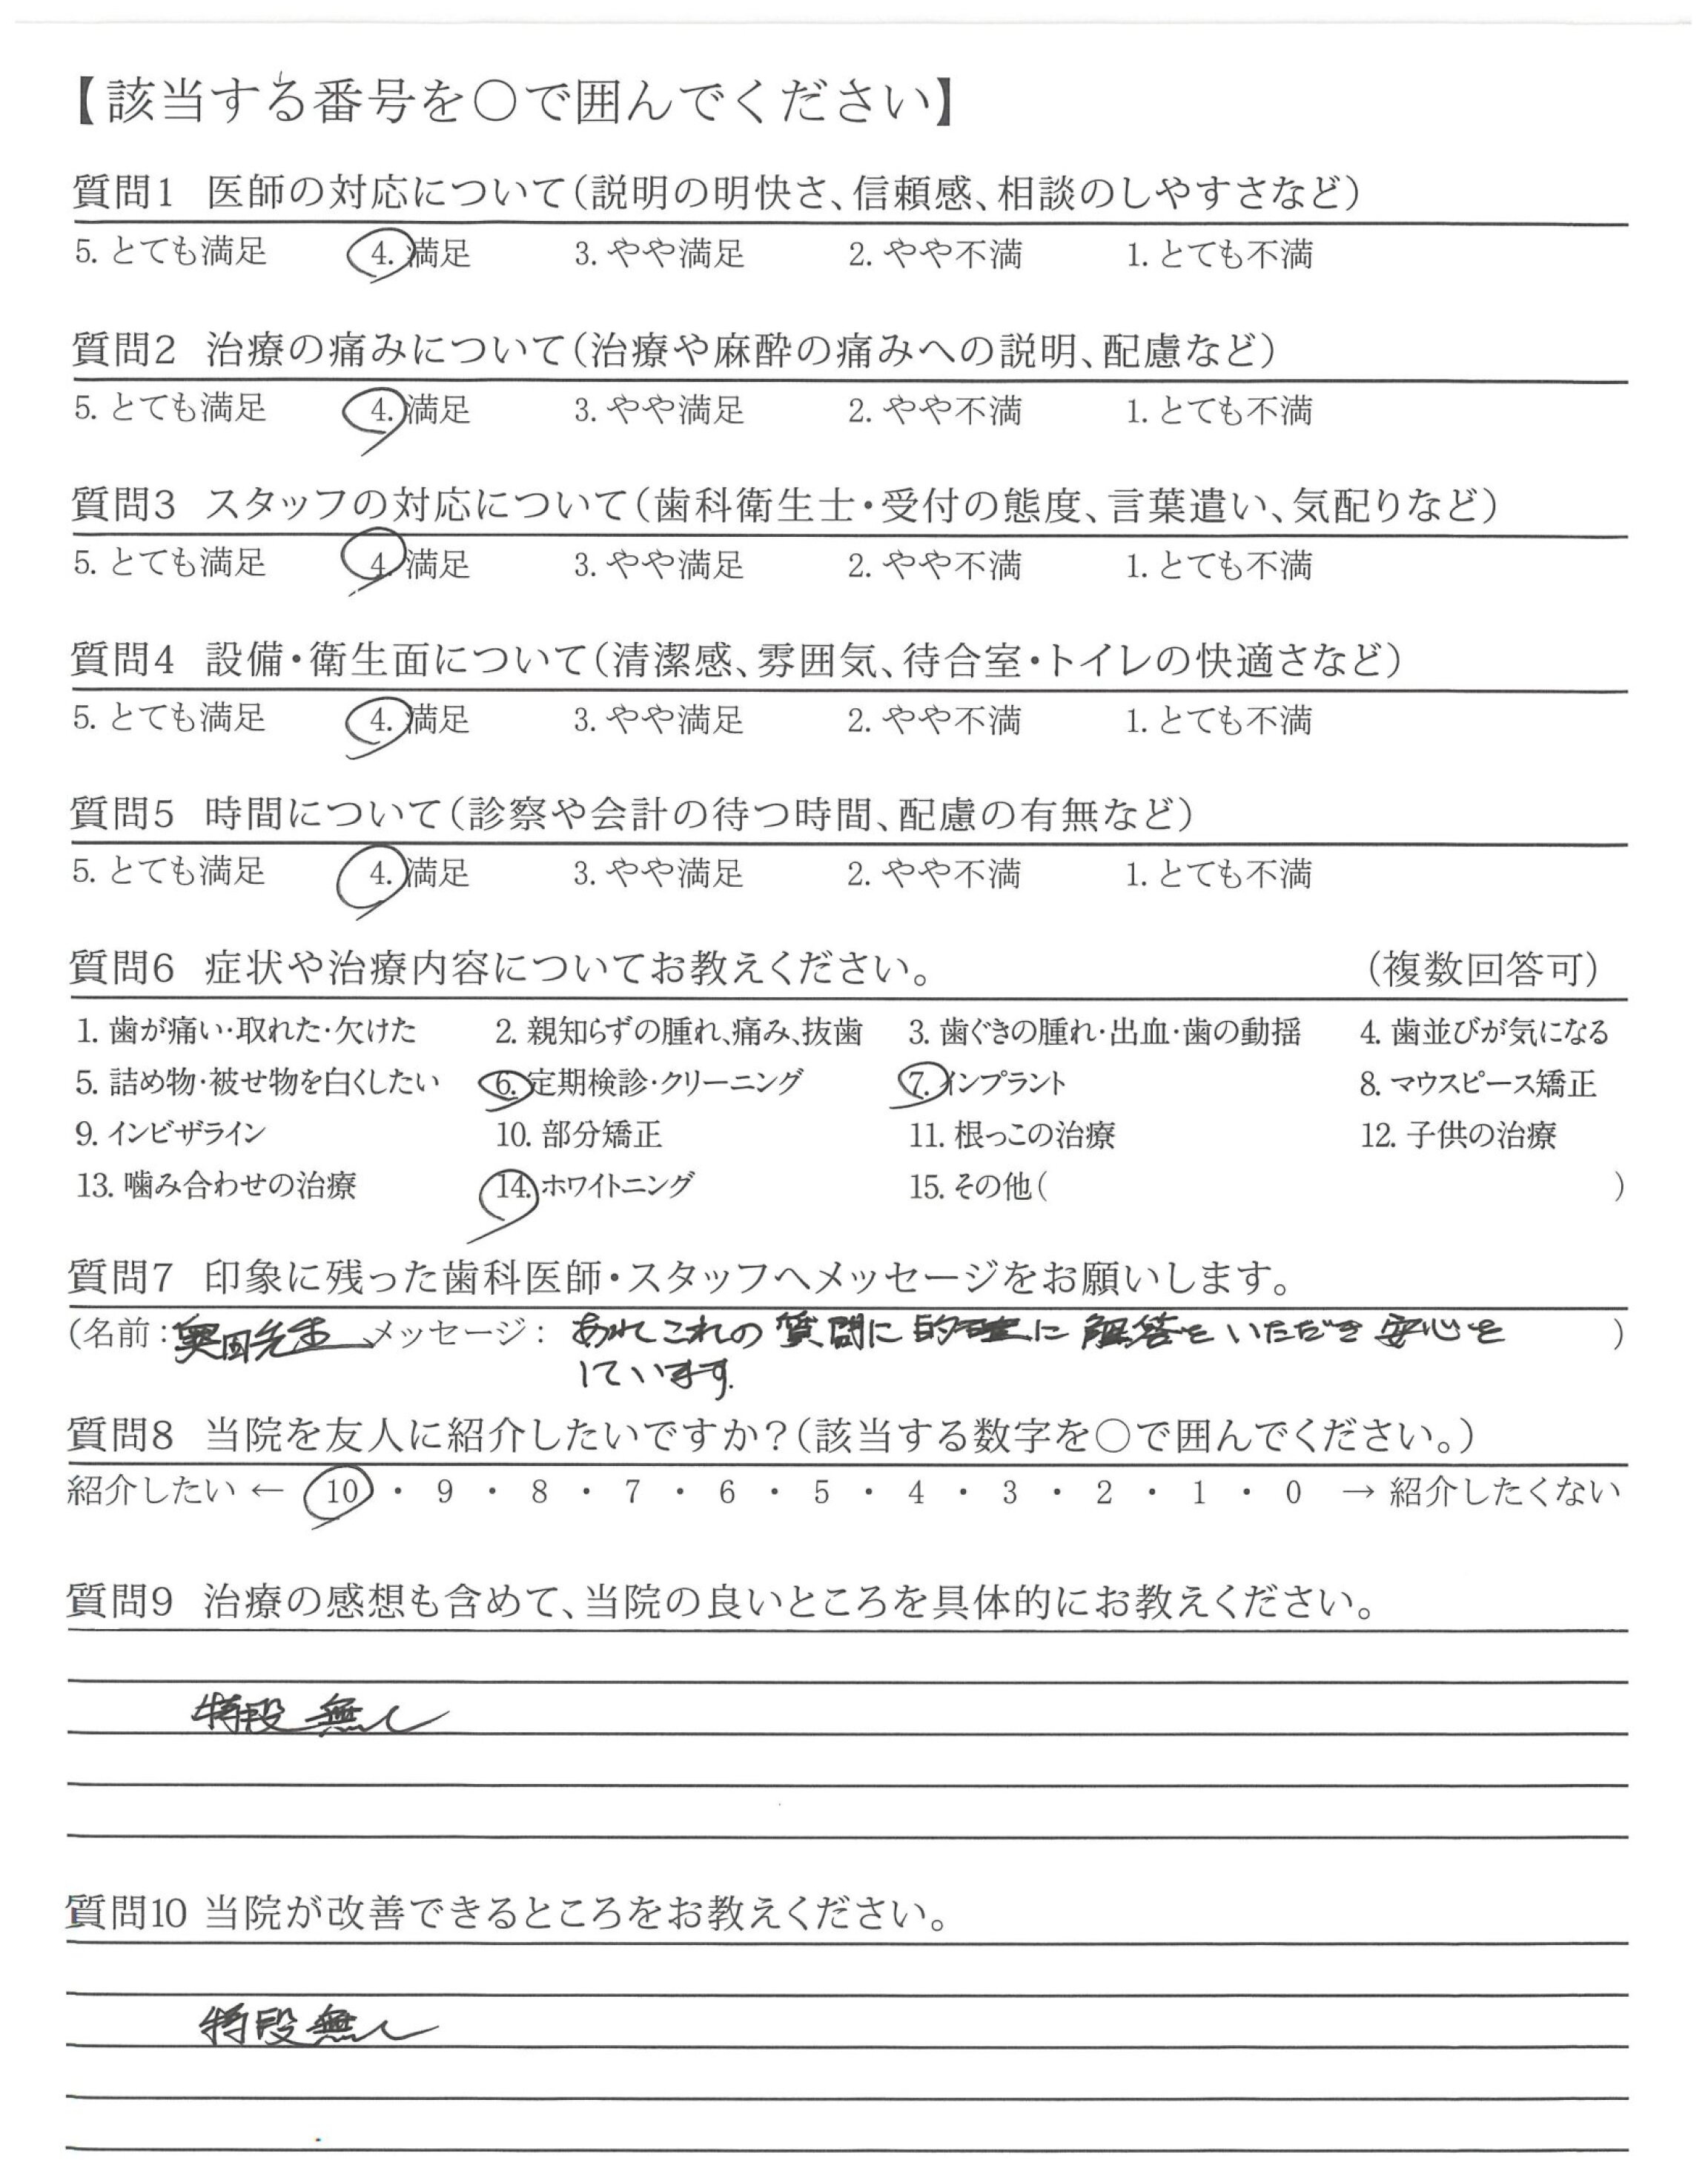 【該当する番号を○で囲んでください】
質問1 医師の対応について(説明の明快さ、信頼感、相談のしやすさなど)
5. とても満足 4. 満足 3. やや満足 2. やや不満 1. とても不満
質問2 治療の痛みについて(治療や麻酔の痛みへの説明、配慮など)
5. とても満足 4. 満足 3. やや満足 2. やや不満 1. とても不満
質問3 スタッフの対応について(歯科衛生士・受付の態度、言葉遣い、気配りなど)
5. とても満足 4. 満足 3. やや満足 2. やや不満 1. とても不満
質問4 設備・衛生面について(清潔感、雰囲気、待合室・トイレの快適さなど)
5. とても満足 4. 満足 3. やや満足 2. やや不満 1. とても不満
質問5 時間について(診察や会計の待つ時間、配慮の有無など)
5. とても満足 4. 満足 3. やや満足 2. やや不満 1. とても不満
質問6 症状や治療内容についてお教えください。 (複数回答可)
1. 歯が痛い・取れた・欠けた 2. 親知らずの腫れ、痛み、抜歯 3. 歯ぐきの腫れ・出血・歯の動揺 4. 歯並びが気になる
5. 詰め物・被せ物を白くしたい 6. 定期検診・クリーニング 7. インプラント 8. マウスピース矯正
9. インビザライン 10. 部分矯正 11. 根っこの治療 12. 子供の治療
13. 噛み合わせの治療 14. ホワイトニング 15. その他( )
質問7 印象に残った歯科医師・スタッフへメッセージをお願いします。
(名前：奥田先生 メッセージ： あれこれの質問に的確に解答をいただき安心を )
しています.
質問8 当院を友人に紹介したいですか？(該当する数字を○で囲んでください。)
紹介したい ← 10 ・ 9 ・ 8 ・ 7 ・ 6 ・ 5 ・ 4 ・ 3 ・ 2 ・ 1 ・ 0 → 紹介したくない
質問9 治療の感想も含めて、当院の良いところを具体的にお教えください。
特段無し
質問10 当院が改善できるところをお教えください。
特段無し